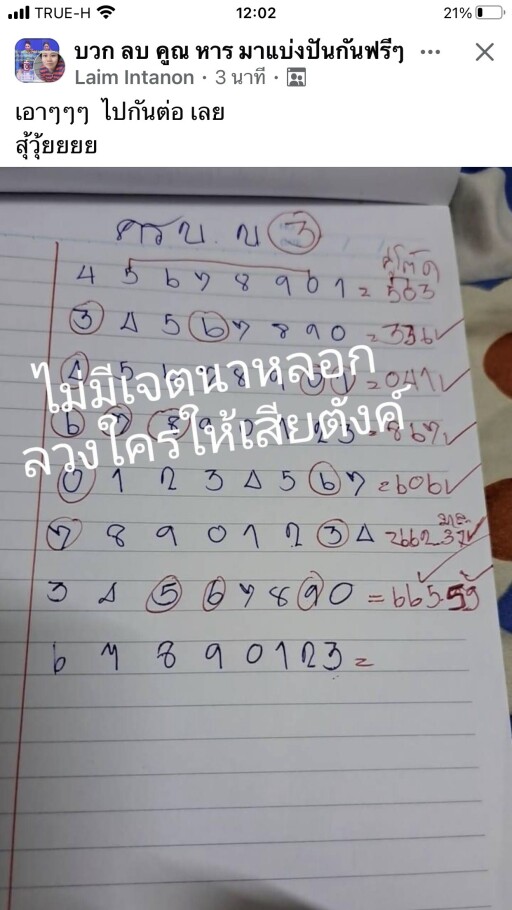 TRUE-H 12:02 21%
บวก ลบ คูณ หาร มาแบ่งปันกันฟรีๆ
Laim Intanon · 3 นาที ·
เอาๆๆๆ ไปกันต่อ เลย
สุ้วุ้ยยยย
3
4 5 6 7 8 9 0 1 = 503
3 4 5 6 7 8 9 0 = 336
ไม่มีเจตนาหลอก
= 041
ลวงใครให้เสียตังค์
= 867
0 1 2 3 4 5 6 7 = 606
7 8 9 0 1 2 3 4 = 662
3 4 5 6 7 8 9 0 = 665
6 7 8 9 0 1 2 3 =